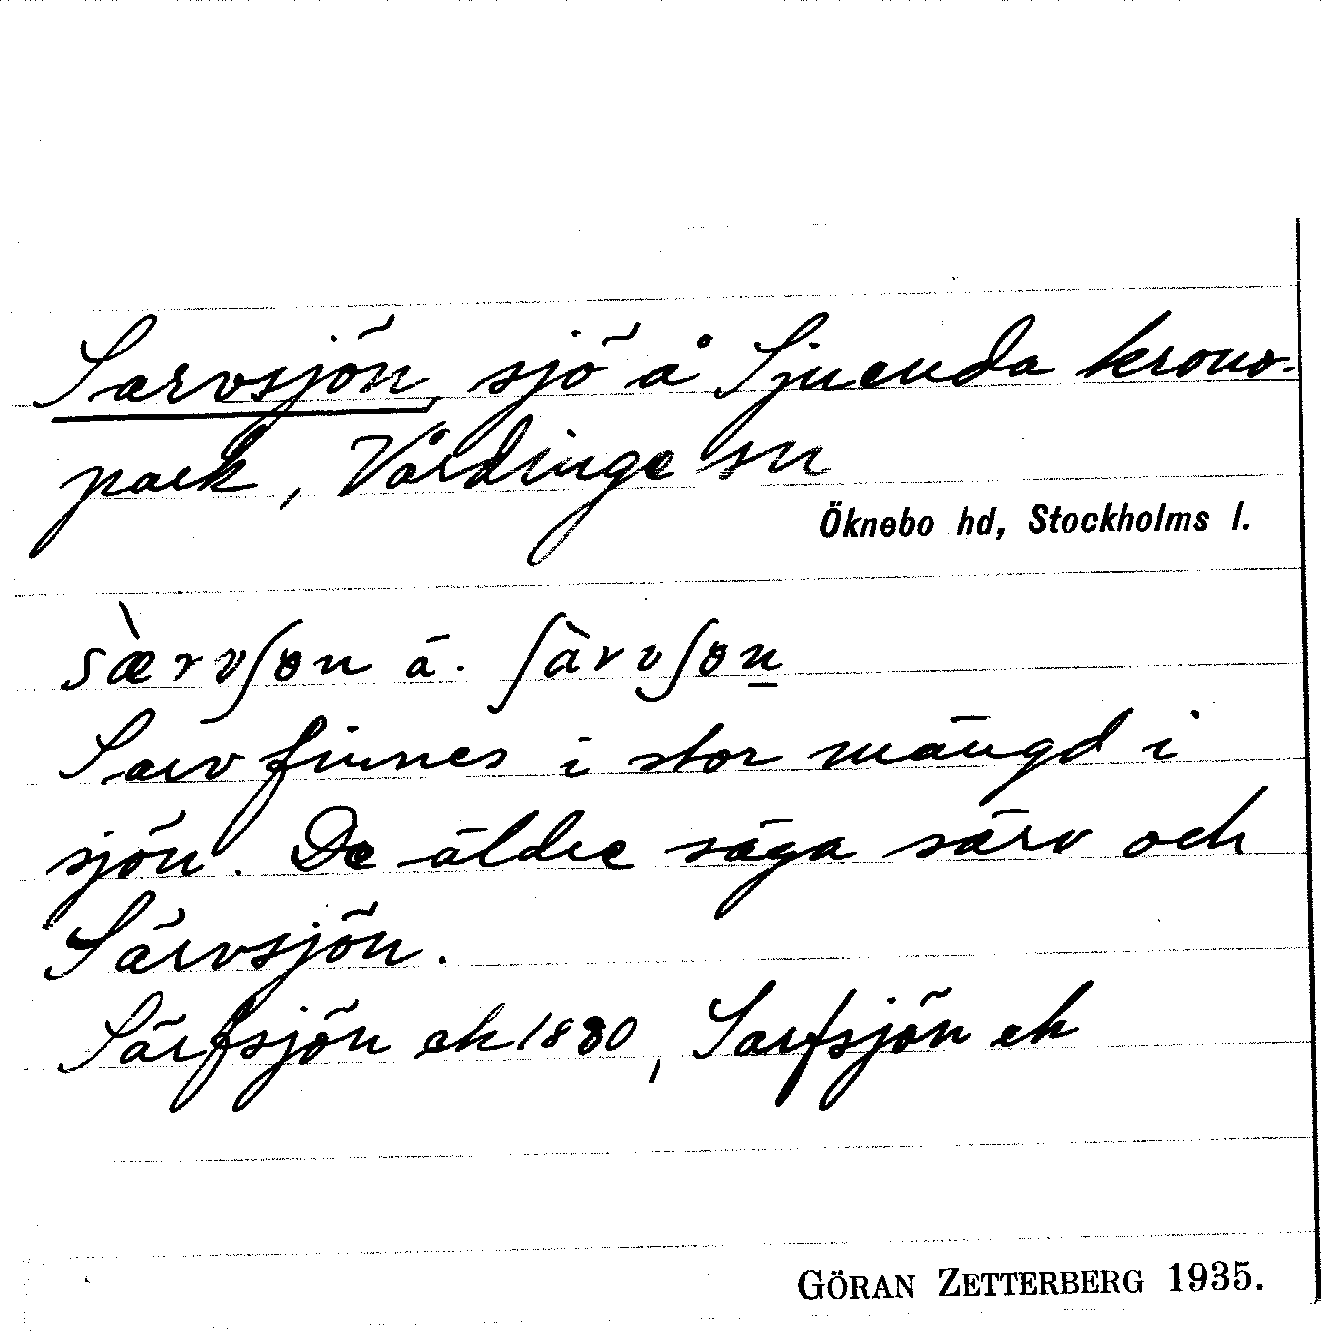 Sarvsjön, sjö å Sjuenda krono-
park, Vårdinge sn
Öknebo hd, Stockholms l.
sæ̀rvʃɵn ä. ʃàrvʃɵn
Sarv finnes i stor mängd i
sjön. De äldre säga särv och
Särvsjön.
Särfsjön ek 1880, Sarfsjön ek
GÖRAN ZETTERBERG 1935.